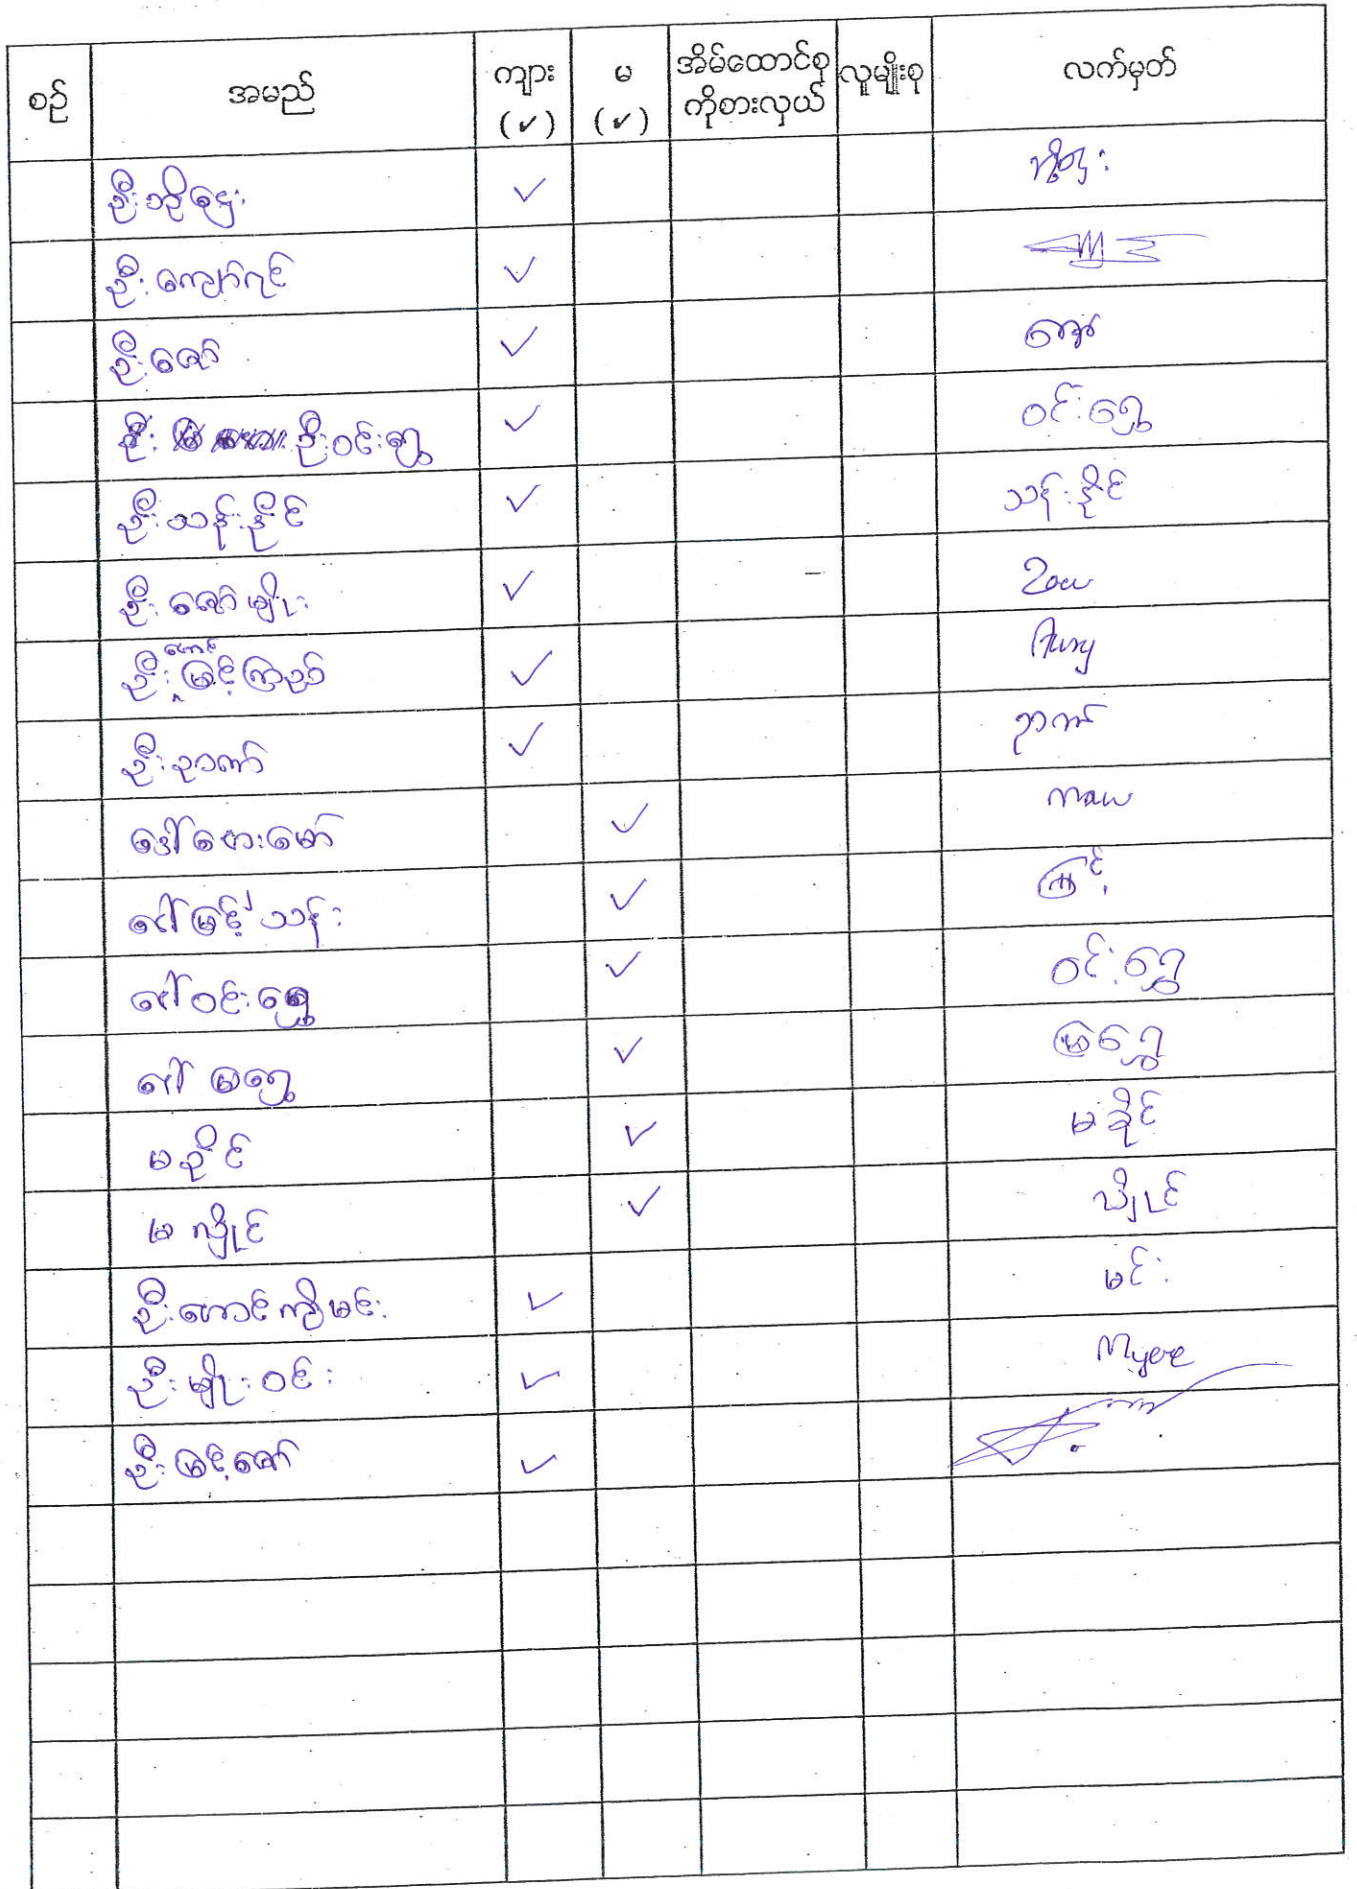 စဉ် အမည် ကျား (✓) မ (✓) အိမ်ထောင်စု ကိုစားလှယ် လူမျိုးစု လက်မှတ်
ဦး ✓
ဦးကျော်ဂင် ✓
ဦးဇော် ✓ ဇော်
ဦး ဦးဝင်းရွှေ ✓ ဝင်းရွှေ
ဦးသန်းနိုင် ✓ သန်းနိုင်
ဦးဇော်မျိုး ✓ Zaw
ဦးအောင်မြင့်ကြည် ✓ Aung
ဦးဉာဏ် ✓ ဉာဏ်
ဒေါ်ဌေးမော် ✓ maw
ဒေါ်မြင့်သန်း ✓ မြင့်
ဒေါ်ဝင်းရွှေ ✓ ဝင်းရွှေ
ဒေါ်မြရွှေ ✓ မြရွှေ
မခိုင် ✓ မခိုင်
မလှိုင် ✓ လှိုင်
ဦးအောင်ကျော်မင်း ✓ မင်း
ဦးမျိုးဝင်း ✓ Myoe
ဦးမြင့်ဇော် ✓